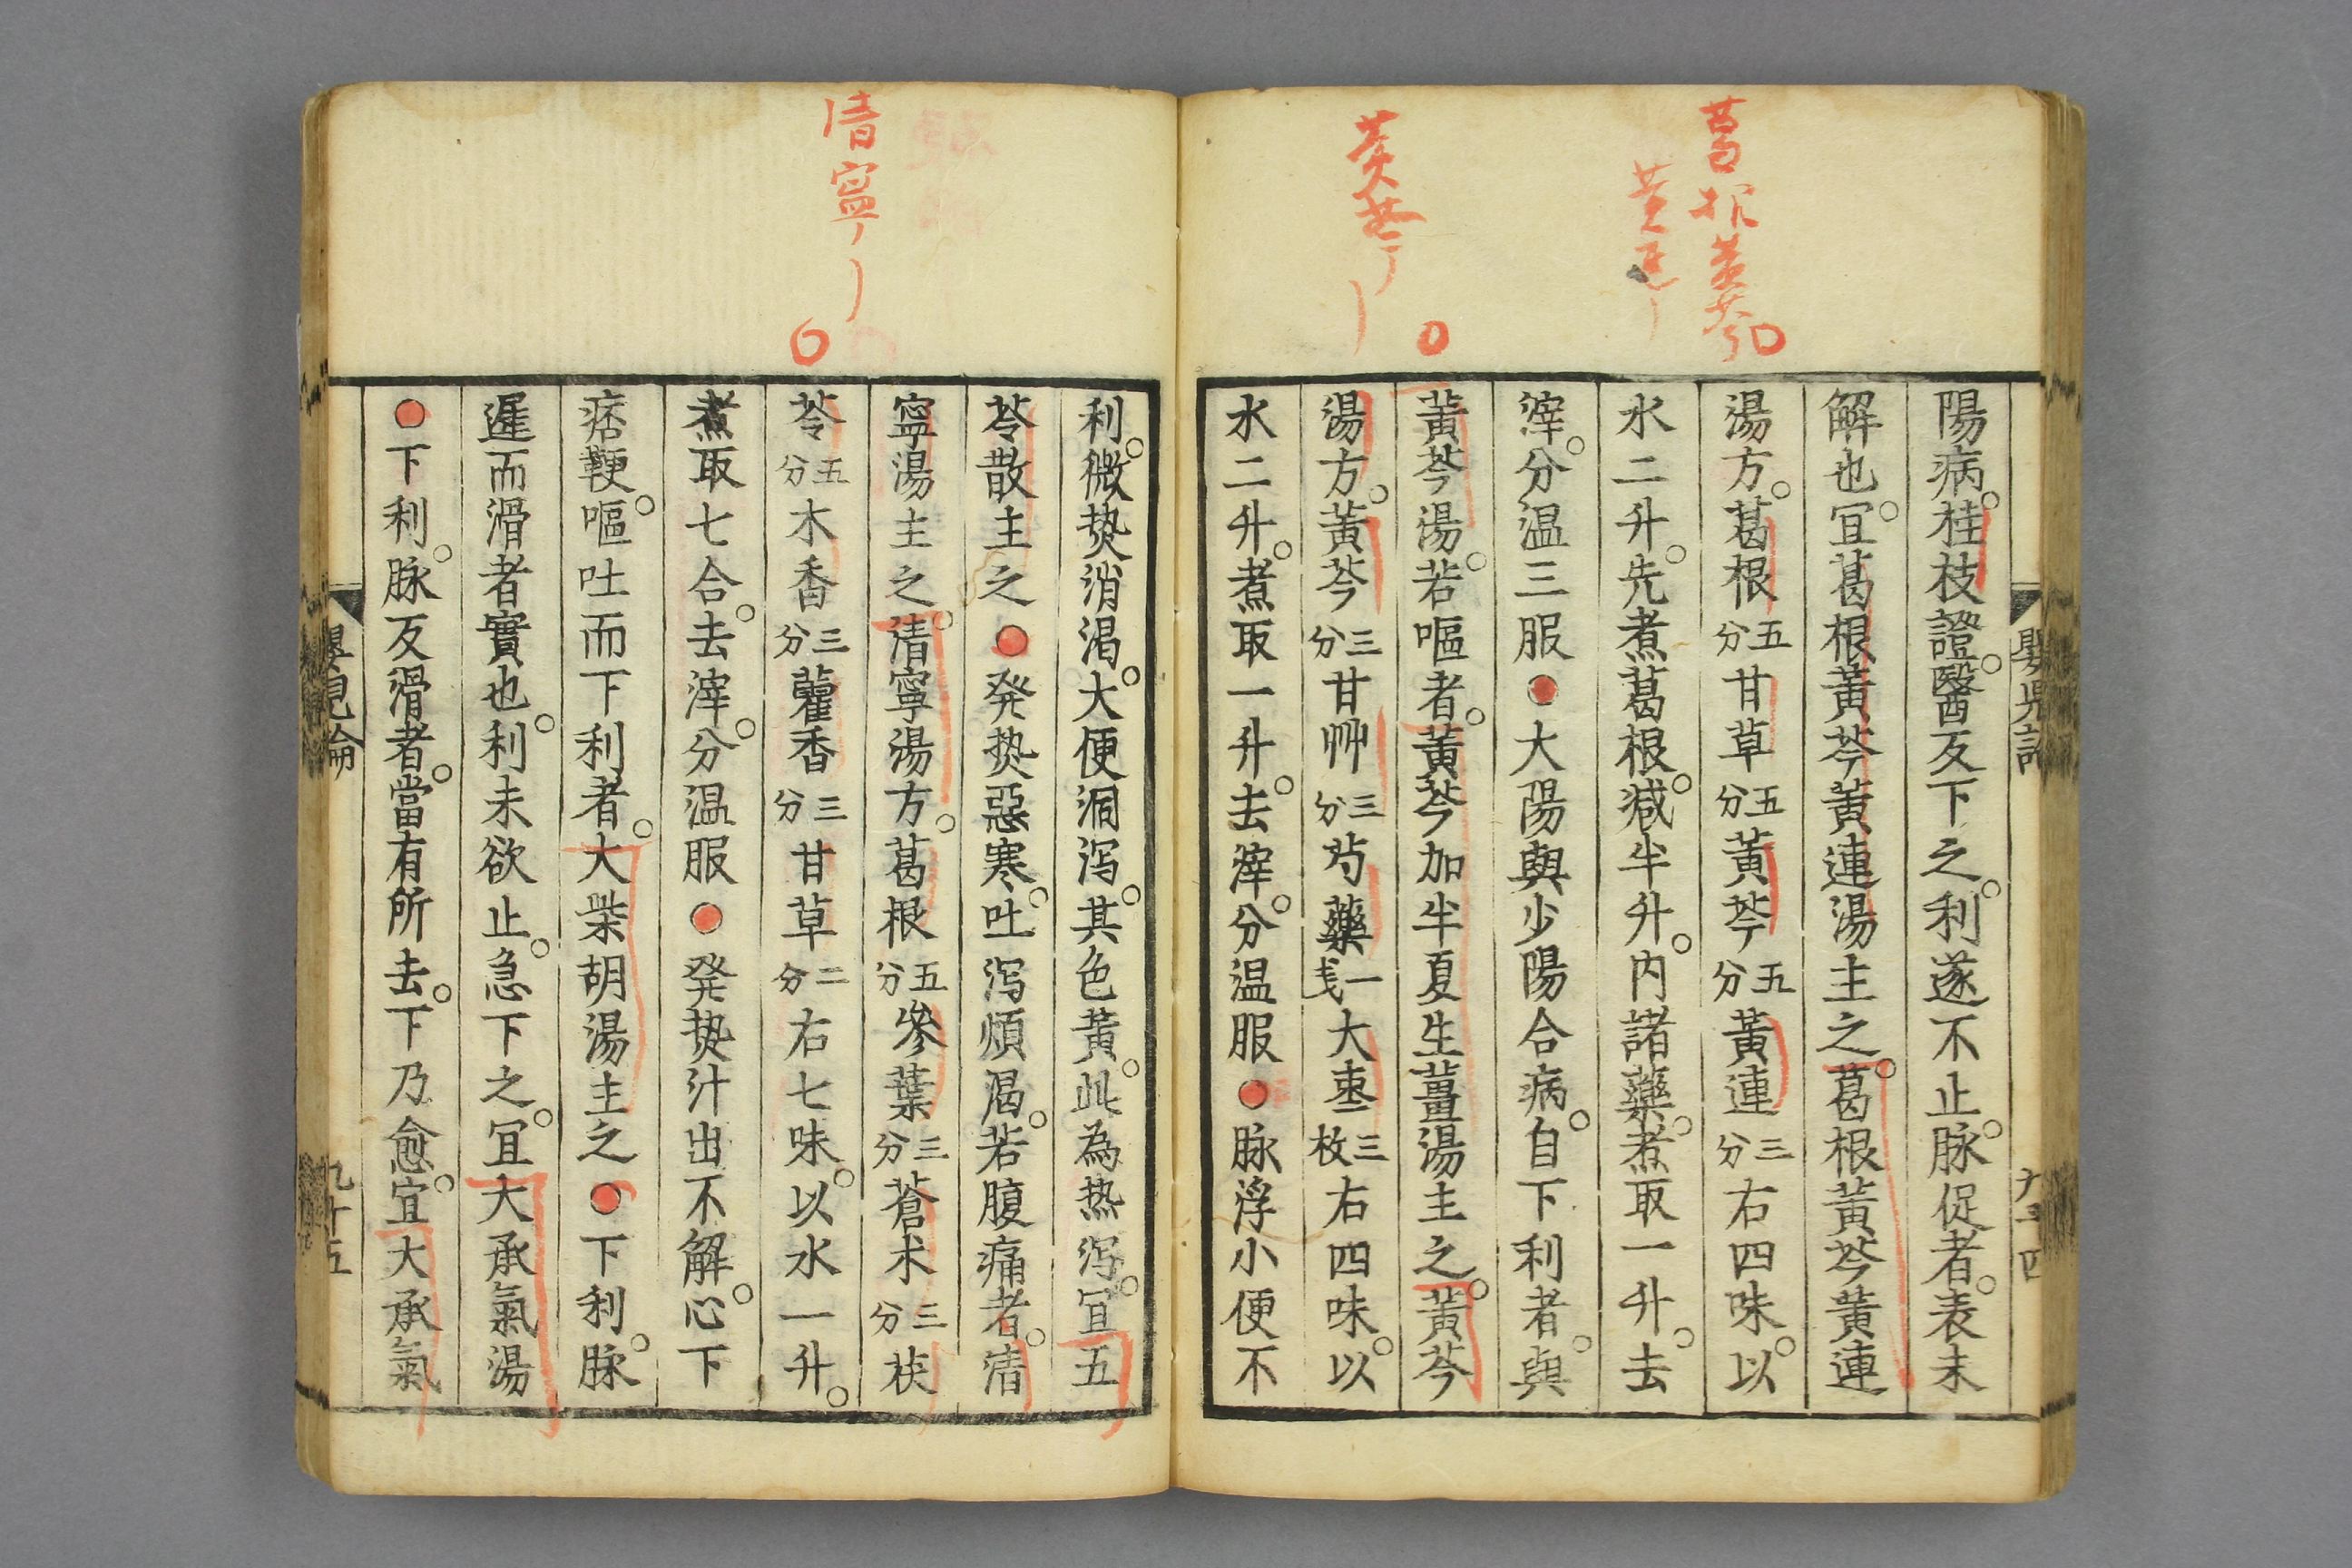 葛根黃芩
黃連
黃芩
陽病。桂枝證。醫反下之。利遂不止。脉促者。表未
解也。宜葛根黃芩黃連湯主之。葛根黃芩黃連
湯方。葛根五分甘草五分黃芩五分黃連三分右四味。以
水二升。先煮葛根。減半升。内諸藥。煮取一升。去
滓。分温三服●大陽與少陽合病。自下利者。與
黃芩湯。若嘔者。黃芩加半夏生薑湯主之。黃芩
湯方。黃芩三分甘艸三分芍藥一戔大棗三枚右四味。以
水二升。煮取一升。去滓。分温服●脉浮小便不
九十四
清寧
利。微热消渴。大便洞泻。其色黃。此為热泻。宜五
苓散主之●発热惡寒。吐泻煩渴。若腹痛者。清
寧湯主之。清寧湯方。葛根五分參葉三分蒼术三分茯
苓五分木香三分藿香三分甘草二分右七味。以水一升。
煮取七合。去滓。分温服●発热汁出不解。心下
痞鞕。嘔吐而下利者。大柴胡湯主之●下利。脉
遲而滑者實也。利未欲止。急下之。宜大承氣湯
●下利。脉反滑者。當有所去。下乃愈。宜大承氣
嬰兒論
九十五